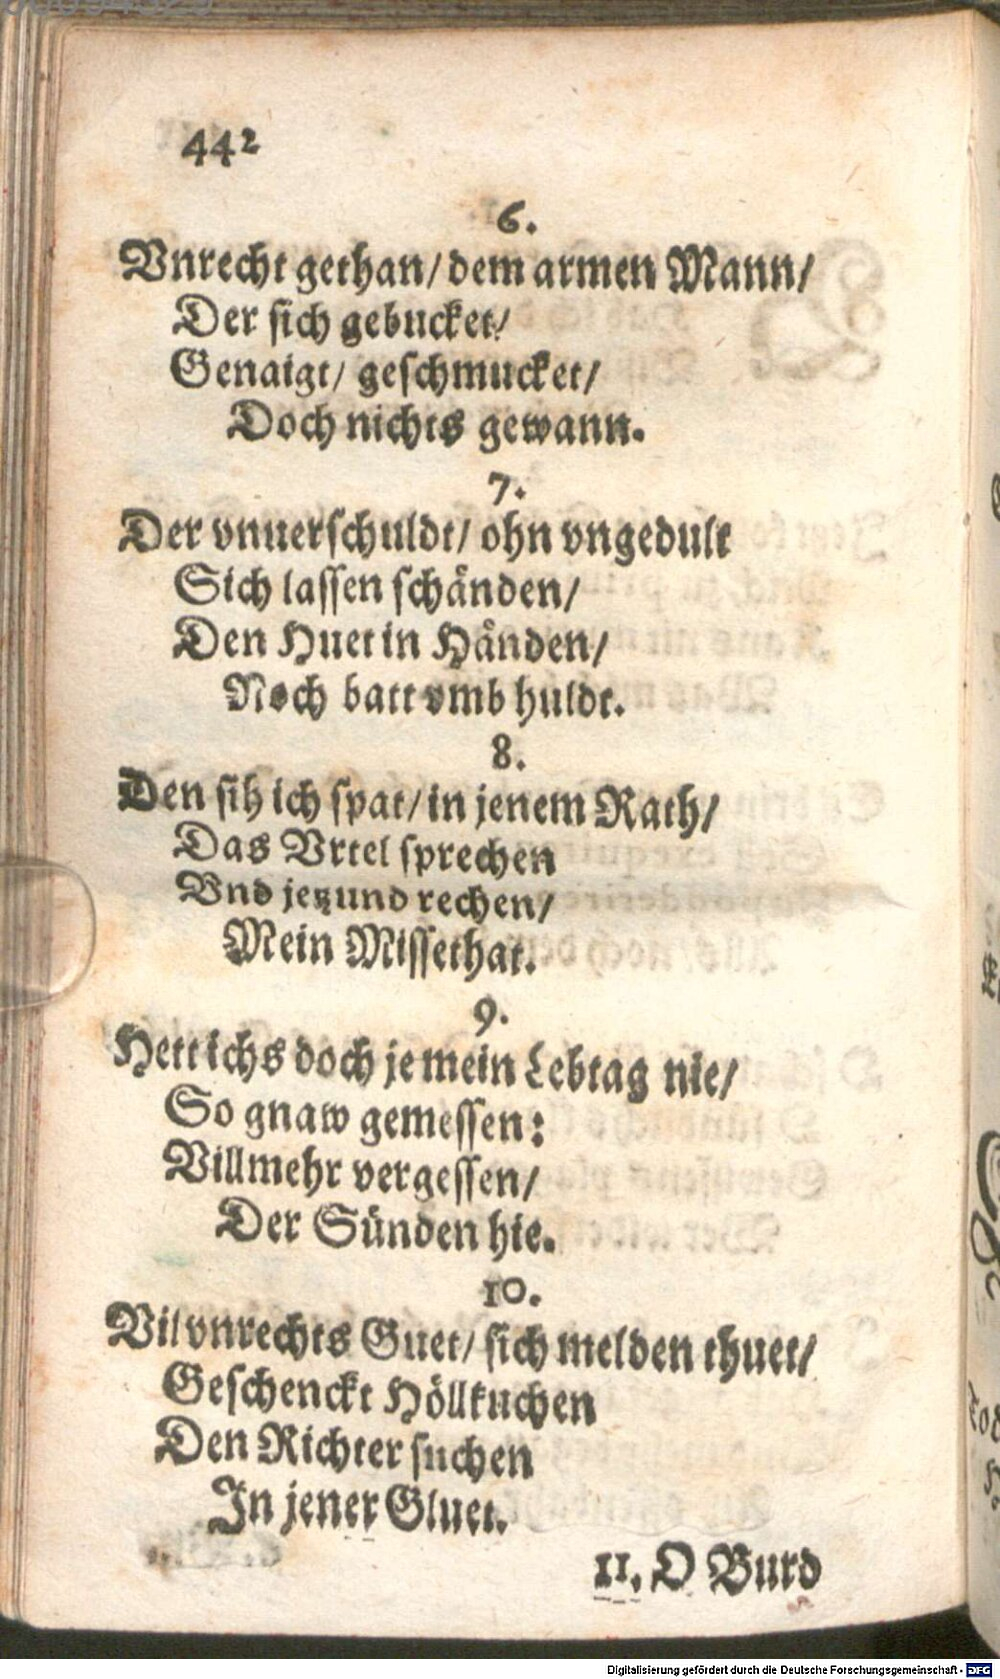 442
6.
Vnrecht gethan/ dem armen Mann/
Der sich gebucket/
Genaigt/ geschmucket/
Doch nichts gewann.
7.
Der vnuerschuldt/ ohn vngedult
Sich lassen schänden/
Den Huet in Händen/
Noch batt vmb huldt.
8.
Den sih ich spat/ in jenem Rath/
Das Vrtel sprechen
Vnd jetzund rechen/
Mein Missethat.
9.
Hett ichs doch je mein Lebtag nie/
So gnaw gemessen:
Villmehr vergessen/
Der Sünden hie.
10.
Vil vnrechts Guet/ sich melden thuet/
Geschenckt Höllkuchen
Den Richter suchen
In jener Gluet.
11. O Burd
Digitalisierung gefördert durch die Deutsche Forschungsgemeinschaft - DFG